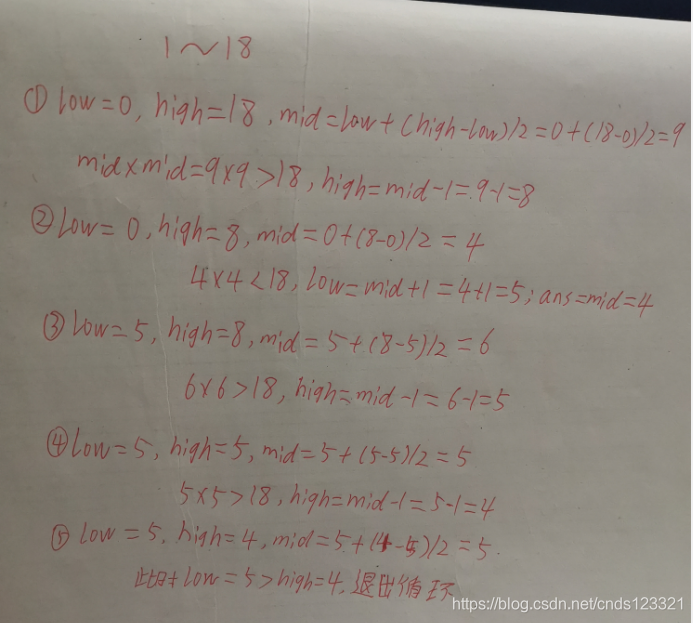 1～18
① low=0, high=18, mid=low+(high-low)/2=0+(18-0)/2=9
mid×mid=9×9>18, high=mid-1=9-1=8
② low=0, high=8, mid=0+(8-0)/2=4
4×4<18, low=mid+1=4+1=5; ans=mid=4
③ low=5, high=8, mid=5+(8-5)/2=6
6×6>18, high=mid-1=6-1=5
④ low=5, high=5, mid=5+(5-5)/2=5
5×5>18, high=mid-1=5-1=4
⑤ low=5, high=4, mid=5+(4-5)/2=5.
此时 low=5>high=4, 退出循环
https://blog.csdn.net/cnds123321